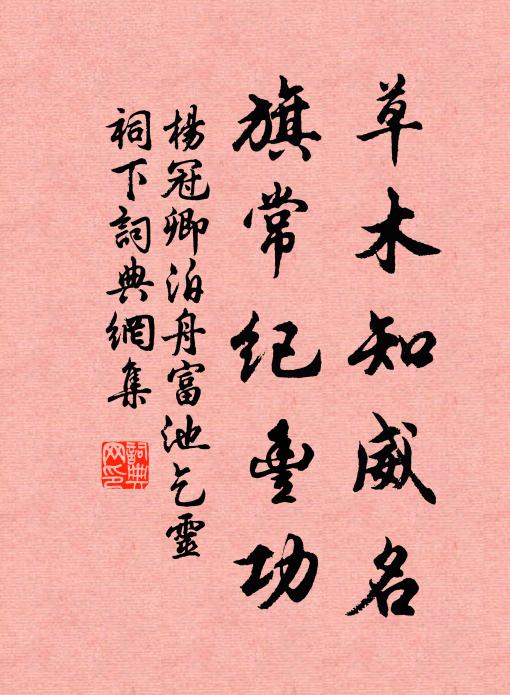 草木知威名
旗常纪豊功
楊冠卿泊舟富池乞靈
祠下詞典網集
詞典
网印